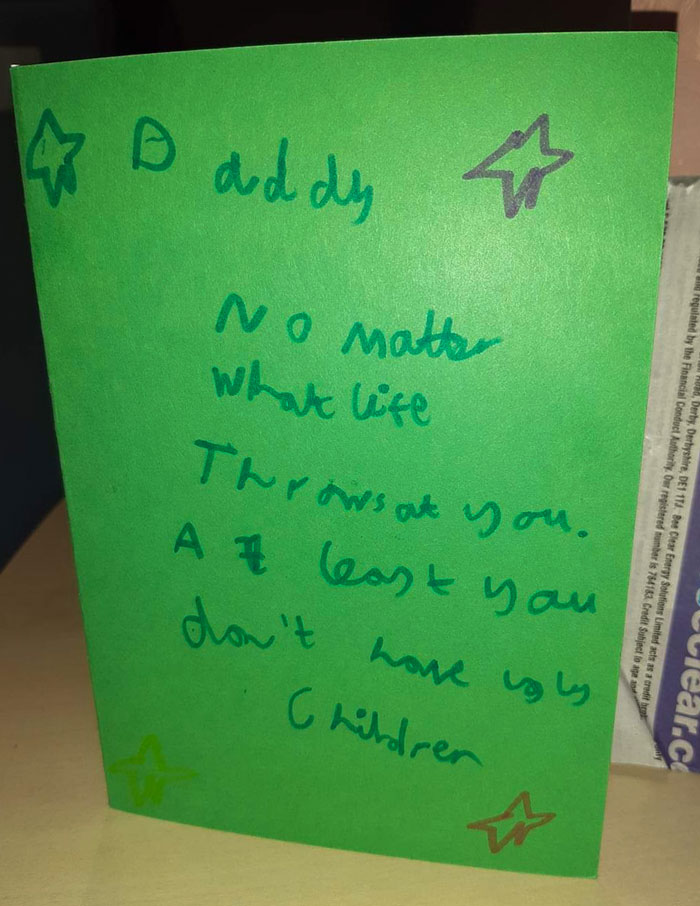 Daddy
No matter
what life
Throws at you.
At least you
don't have ugly
Children
and regulated by the Financial Conduct Authority. Our registered number is 784183. Credit Subject to age and
Road, Derby, Derbyshire, DE1 1TJ. Bee Clear Energy Solutions Limited acts as a credit
eclear.c